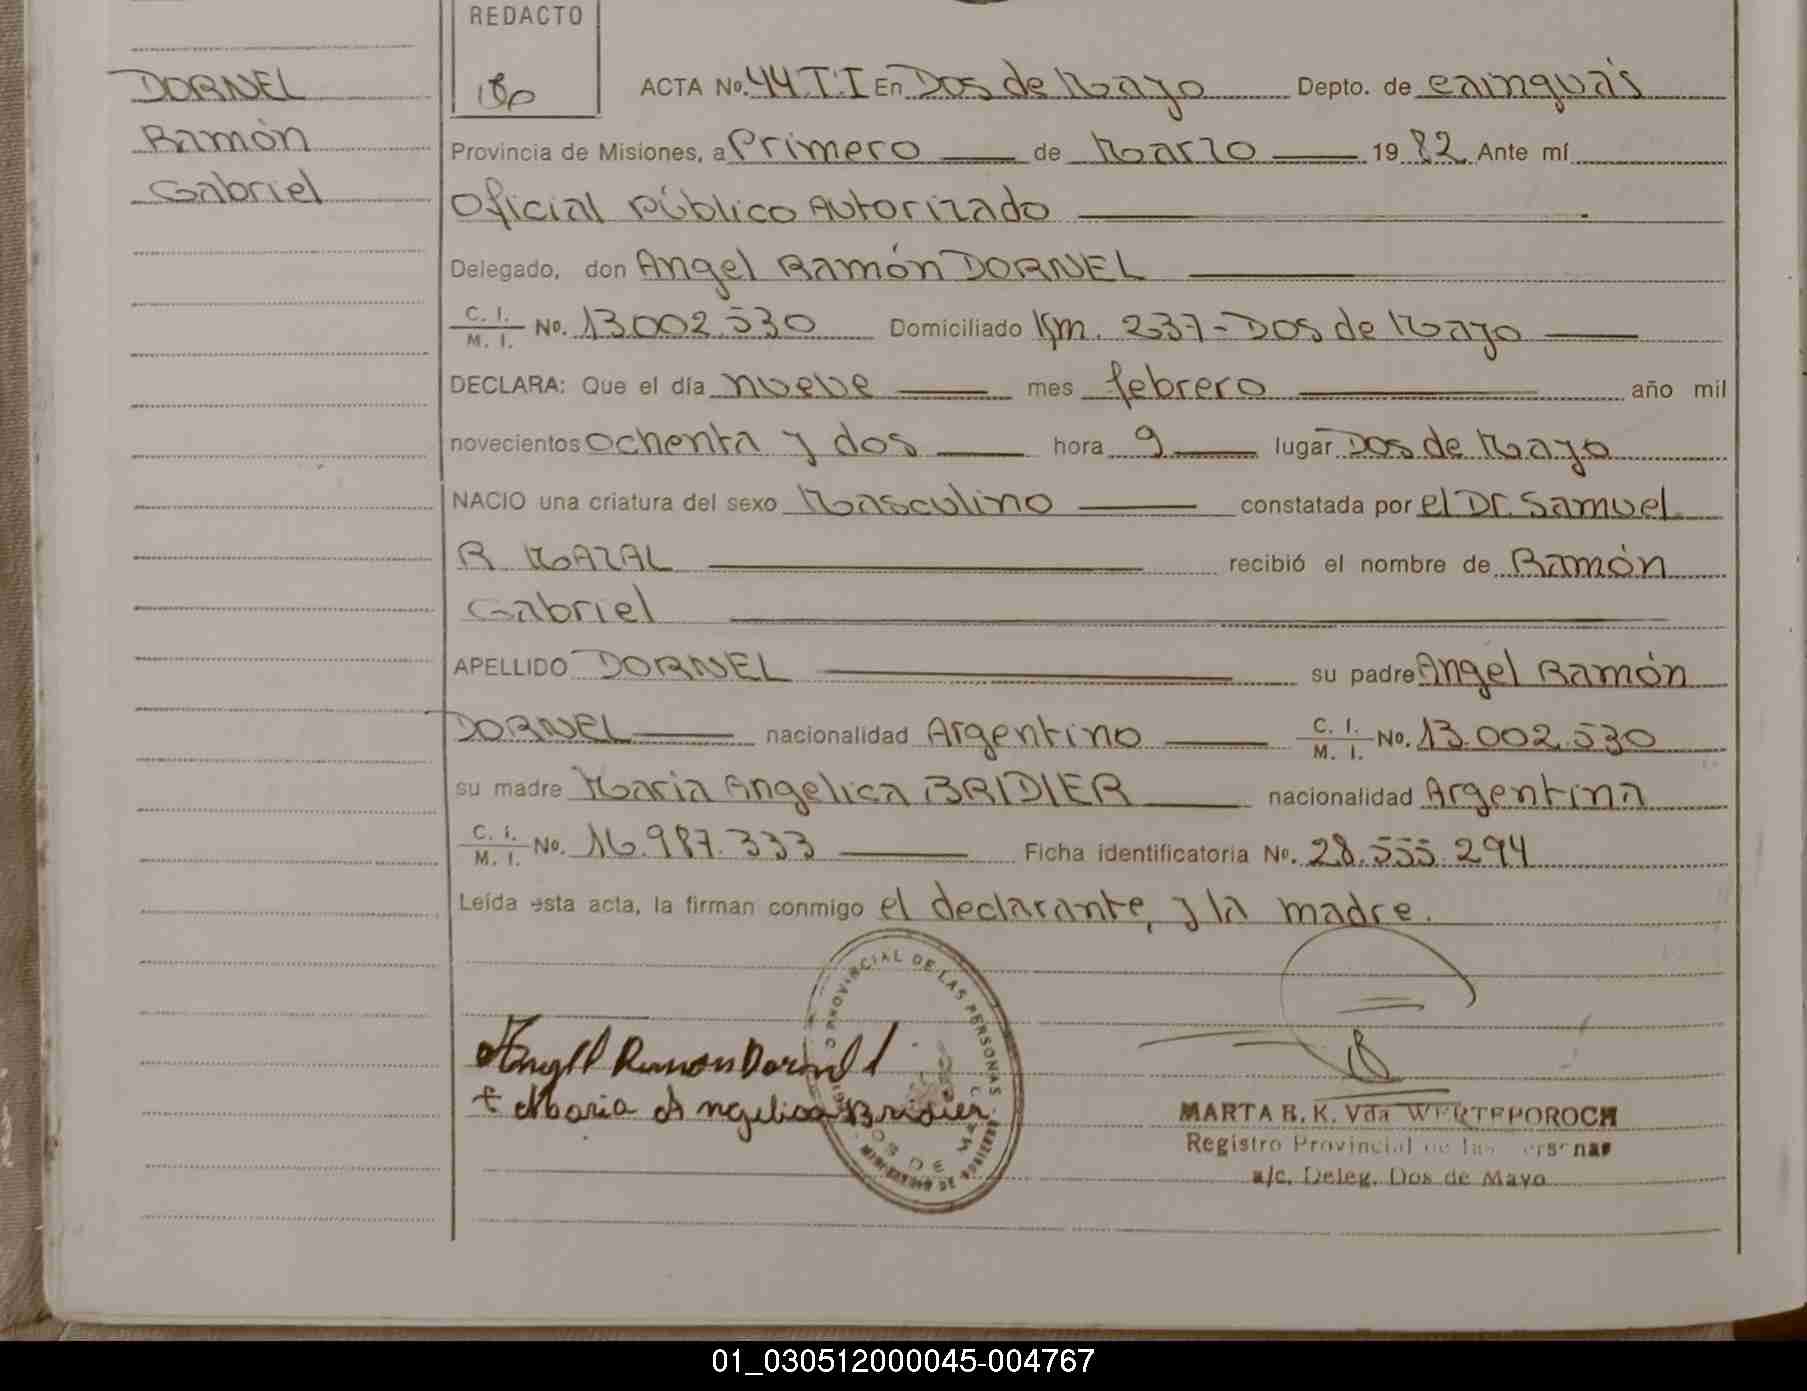 REDACTO
DORNEL
Ramón
Gabriel
ACTA No. 44 T.I En Dos de Mayo Depto. de Cainguás
Provincia de Misiones, a Primero de Marzo 1982 Ante mí
Oficial Público Autorizado
Delegado, don Angel Ramón DORNEL
C. I. / M. I. No. 13.002.530 Domiciliado Km. 237-Dos de Mayo
DECLARA: Que el día nueve mes febrero año mil
novecientos ochenta y dos hora 9 lugar Dos de Mayo
NACIO una criatura del sexo Masculino constatada por el Dr. Samuel
R. MAZAL recibió el nombre de Ramón
Gabriel
APELLIDO DORNEL su padre Angel Ramón
DORNEL nacionalidad Argentino C. I. / M. I. No. 13.002.530
su madre Maria Angelica BRIDIER nacionalidad Argentina
C. I. / M. I. No. 16.987.333 Ficha identificatoria No. 28.555.294
Leída esta acta, la firman conmigo el declarante, y la madre.
PROVINCIAL DE LAS PERSONAS
Angel Ramon Dornel
Maria Angelica Bridier
MARTA R. K. Vda WERTEPOROCH
Registro Provincial de las Personas
a/c. Deleg. Dos de Mayo
01_030512000045-004767